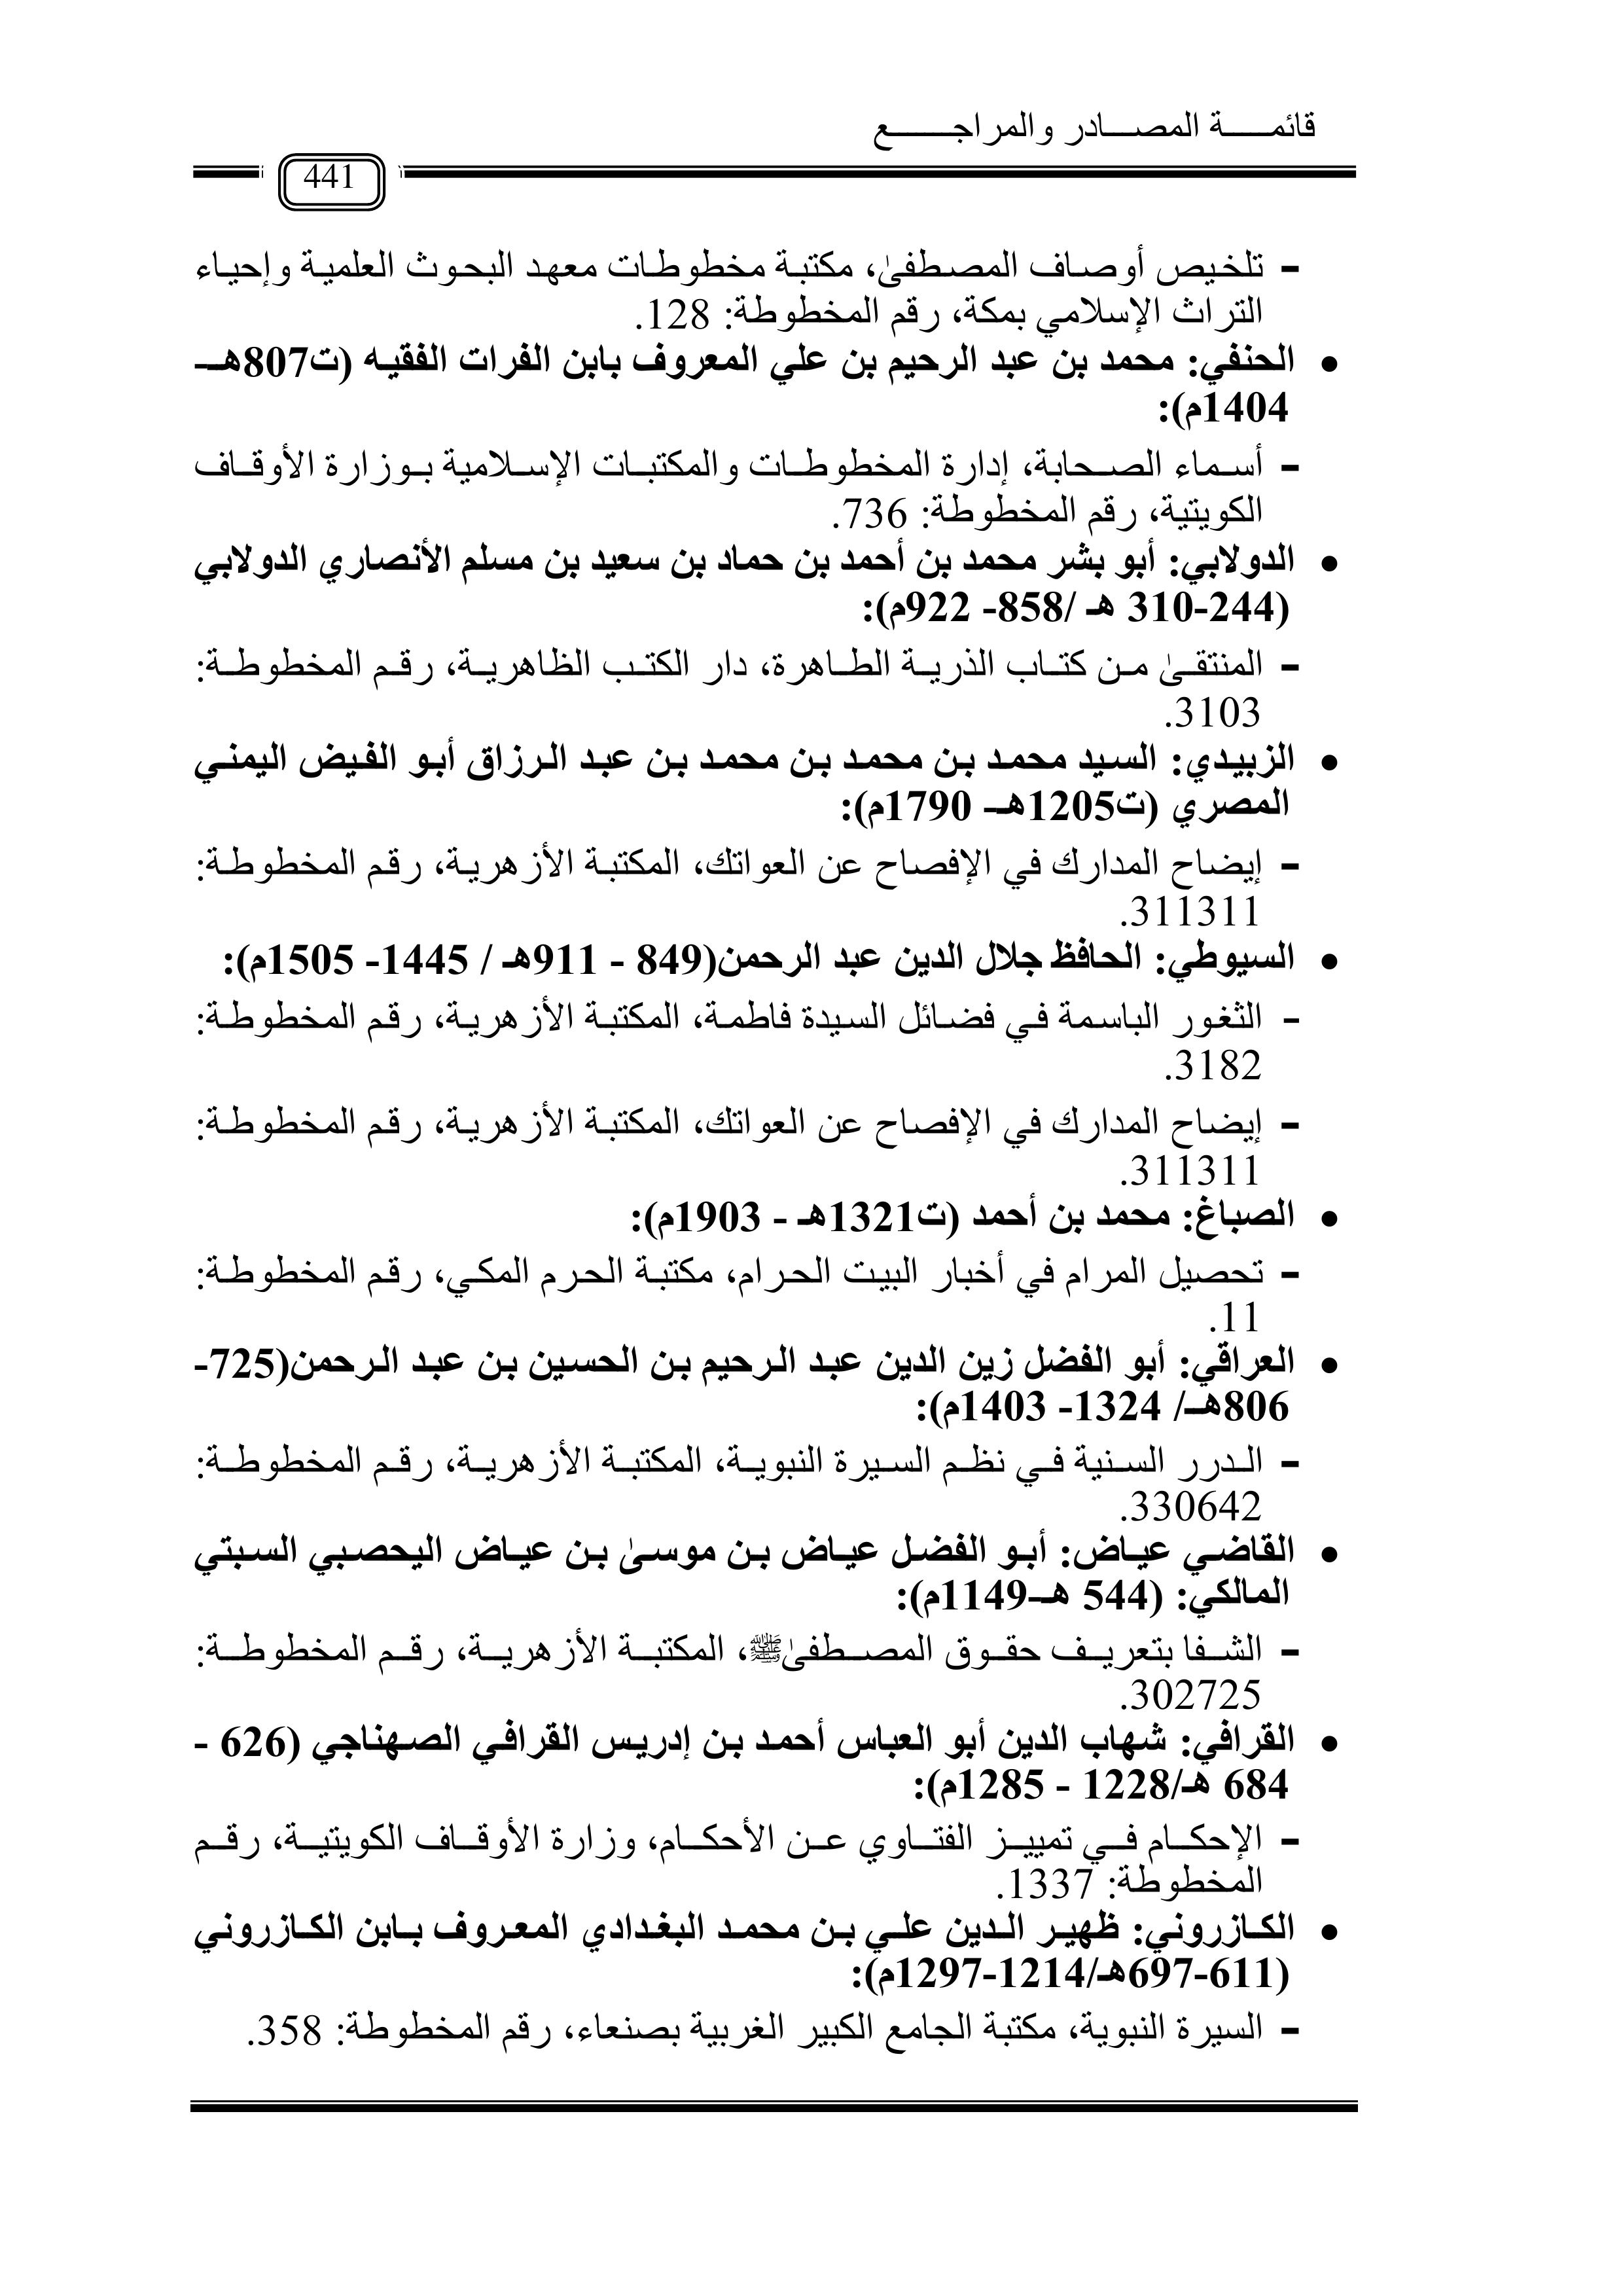 قائمة المصادر والمراجع
441
- تلخيص أوصاف المصطفىٰ، مكتبة مخطوطات معهد البحوث العلمية وإحياء
التراث الإسلامي بمكة، رقم المخطوطة: 128.
• الحنفي: محمد بن عبد الرحيم بن علي المعروف بابن الفرات الفقيه (ت807هـ-
1404م):
- أسماء الصحابة، إدارة المخطوطات والمكتبات الإسلامية بوزارة الأوقاف
الكويتية، رقم المخطوطة: 736.
• الدولابي: أبو بشر محمد بن أحمد بن حماد بن سعيد بن مسلم الأنصاري الدولابي
(244-310 هـ /858- 922م):
- المنتقىٰ من كتاب الذرية الطاهرة، دار الكتب الظاهرية، رقم المخطوطة:
3103.
• الزبيدي: السيد محمد بن محمد بن محمد بن عبد الرزاق أبو الفيض اليمني
المصري (ت1205هـ- 1790م):
- إيضاح المدارك في الإفصاح عن العواتك، المكتبة الأزهرية، رقم المخطوطة:
311311.
• السيوطي: الحافظ جلال الدين عبد الرحمن(849 - 911هـ / 1445- 1505م):
- الثغور الباسمة في فضائل السيدة فاطمة، المكتبة الأزهرية، رقم المخطوطة:
3182.
- إيضاح المدارك في الإفصاح عن العواتك، المكتبة الأزهرية، رقم المخطوطة:
311311.
• الصباغ: محمد بن أحمد (ت1321هـ - 1903م):
- تحصيل المرام في أخبار البيت الحرام، مكتبة الحرم المكي، رقم المخطوطة:
11.
• العراقي: أبو الفضل زين الدين عبد الرحيم بن الحسين بن عبد الرحمن(725-
806هـ/ 1324- 1403م):
- الدرر السنية في نظم السيرة النبوية، المكتبة الأزهرية، رقم المخطوطة:
330642.
• القاضي عياض: أبو الفضل عياض بن موسىٰ بن عياض اليحصبي السبتي
المالكي: (544 هـ-1149م):
- الشفا بتعريف حقوق المصطفىٰﷺ، المكتبة الأزهرية، رقم المخطوطة:
302725.
• القرافي: شهاب الدين أبو العباس أحمد بن إدريس القرافي الصهناجي (626 -
684 هـ/1228 - 1285م):
- الإحكام في تمييز الفتاوي عن الأحكام، وزارة الأوقاف الكويتية، رقم
المخطوطة: 1337.
• الكازروني: ظهير الدين علي بن محمد البغدادي المعروف بابن الكازروني
(611-697هـ/1214-1297م):
- السيرة النبوية، مكتبة الجامع الكبير الغربية بصنعاء، رقم المخطوطة: 358.